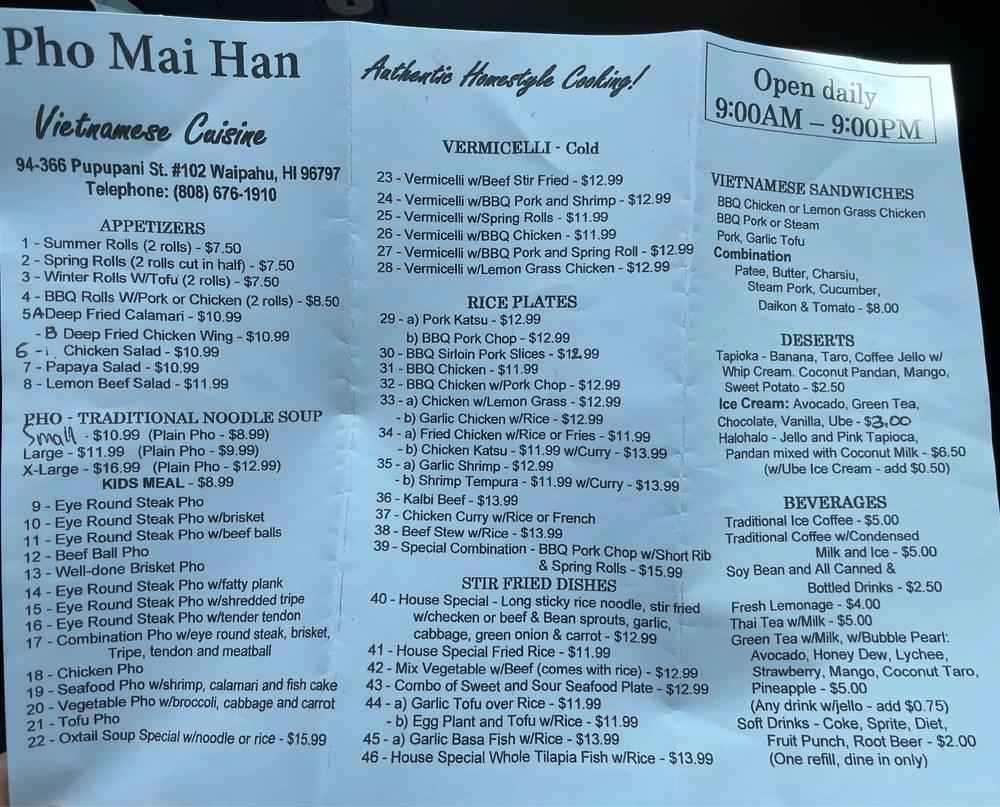 Pho Mai Han
Vietnamese Cuisine
94-366 Pupupani St. #102 Waipahu, HI 96797
Telephone: (808) 676-1910
APPETIZERS
1 - Summer Rolls (2 rolls) - $7.50
2 - Spring Rolls (2 rolls cut in half) - $7.50
3 - Winter Rolls W/Tofu (2 rolls) - $7.50
4 - BBQ Rolls W/Pork or Chicken (2 rolls) - $8.50
5A Deep Fried Calamari - $10.99
- B Deep Fried Chicken Wing - $10.99
6 - Chicken Salad - $10.99
7 - Papaya Salad - $10.99
8 - Lemon Beef Salad - $11.99
PHO - TRADITIONAL NOODLE SOUP
Small - $10.99 (Plain Pho - $8.99)
Large - $11.99 (Plain Pho - $9.99)
X-Large - $16.99 (Plain Pho - $12.99)
KIDS MEAL - $8.99
9 - Eye Round Steak Pho
10 - Eye Round Steak Pho w/brisket
11 - Eye Round Steak Pho w/beef balls
12 - Beef Ball Pho
13 - Well-done Brisket Pho
14 - Eye Round Steak Pho w/fatty plank
15 - Eye Round Steak Pho w/shredded tripe
16 - Eye Round Steak Pho w/tender tendon
17 - Combination Pho w/eye round steak, brisket,
Tripe, tendon and meatball
18 - Chicken Pho
19 - Seafood Pho w/shrimp, calamari and fish cake
20 - Vegetable Pho w/broccoli, cabbage and carrot
21 - Tofu Pho
22 - Oxtail Soup Special w/noodle or rice - $15.99
Authentic Homestyle Cooking!
VERMICELLI - Cold
23 - Vermicelli w/Beef Stir Fried - $12.99
24 - Vermicelli w/BBQ Pork and Shrimp - $12.99
25 - Vermicelli w/Spring Rolls - $11.99
26 - Vermicelli w/BBQ Chicken - $11.99
27 - Vermicelli w/BBQ Pork and Spring Roll - $12.99
28 - Vermicelli w/Lemon Grass Chicken - $12.99
RICE PLATES
29 - a) Pork Katsu - $12.99
b) BBQ Pork Chop - $12.99
30 - BBQ Sirloin Pork Slices - $12.99
31 - BBQ Chicken - $11.99
32 - BBQ Chicken w/Pork Chop - $12.99
33 - a) Chicken w/Lemon Grass - $12.99
- b) Garlic Chicken w/Rice - $12.99
34 - a) Fried Chicken w/Rice or Fries - $11.99
- b) Chicken Katsu - $11.99 w/Curry - $13.99
35 - a) Garlic Shrimp - $12.99
- b) Shrimp Tempura - $11.99 w/Curry - $13.99
36 - Kalbi Beef - $13.99
37 - Chicken Curry w/Rice or French
38 - Beef Stew w/Rice - $13.99
39 - Special Combination - BBQ Pork Chop w/Short Rib
& Spring Rolls - $15.99
STIR FRIED DISHES
40 - House Special - Long sticky rice noodle, stir fried
w/checken or beef & Bean sprouts, garlic,
cabbage, green onion & carrot - $12.99
41 - House Special Fried Rice - $11.99
42 - Mix Vegetable w/Beef (comes with rice) - $12.99
43 - Combo of Sweet and Sour Seafood Plate - $12.99
44 - a) Garlic Tofu over Rice - $11.99
- b) Egg Plant and Tofu w/Rice - $11.99
45 - a) Garlic Basa Fish w/Rice - $13.99
46 - House Special Whole Tilapia Fish w/Rice - $13.99
Open daily
9:00AM – 9:00PM
VIETNAMESE SANDWICHES
BBQ Chicken or Lemon Grass Chicken
BBQ Pork or Steam
Pork, Garlic Tofu
Combination
Patee, Butter, Charsiu,
Steam Pork, Cucumber,
Daikon & Tomato - $8.00
DESERTS
Tapioka - Banana, Taro, Coffee Jello w/
Whip Cream. Coconut Pandan, Mango,
Sweet Potato - $2.50
Ice Cream: Avocado, Green Tea,
Chocolate, Vanilla, Ube - $3.00
Halohalo - Jello and Pink Tapioca,
Pandan mixed with Coconut Milk - $6.50
(w/Ube Ice Cream - add $0.50)
BEVERAGES
Traditional Ice Coffee - $5.00
Traditional Coffee w/Condensed
Milk and Ice - $5.00
Soy Bean and All Canned &
Bottled Drinks - $2.50
Fresh Lemonage - $4.00
Thai Tea w/Milk - $5.00
Green Tea w/Milk, w/Bubble Pearl:
Avocado, Honey Dew, Lychee,
Strawberry, Mango, Coconut Taro,
Pineapple - $5.00
(Any drink w/jello - add $0.75)
Soft Drinks - Coke, Sprite, Diet,
Fruit Punch, Root Beer - $2.00
(One refill, dine in only)